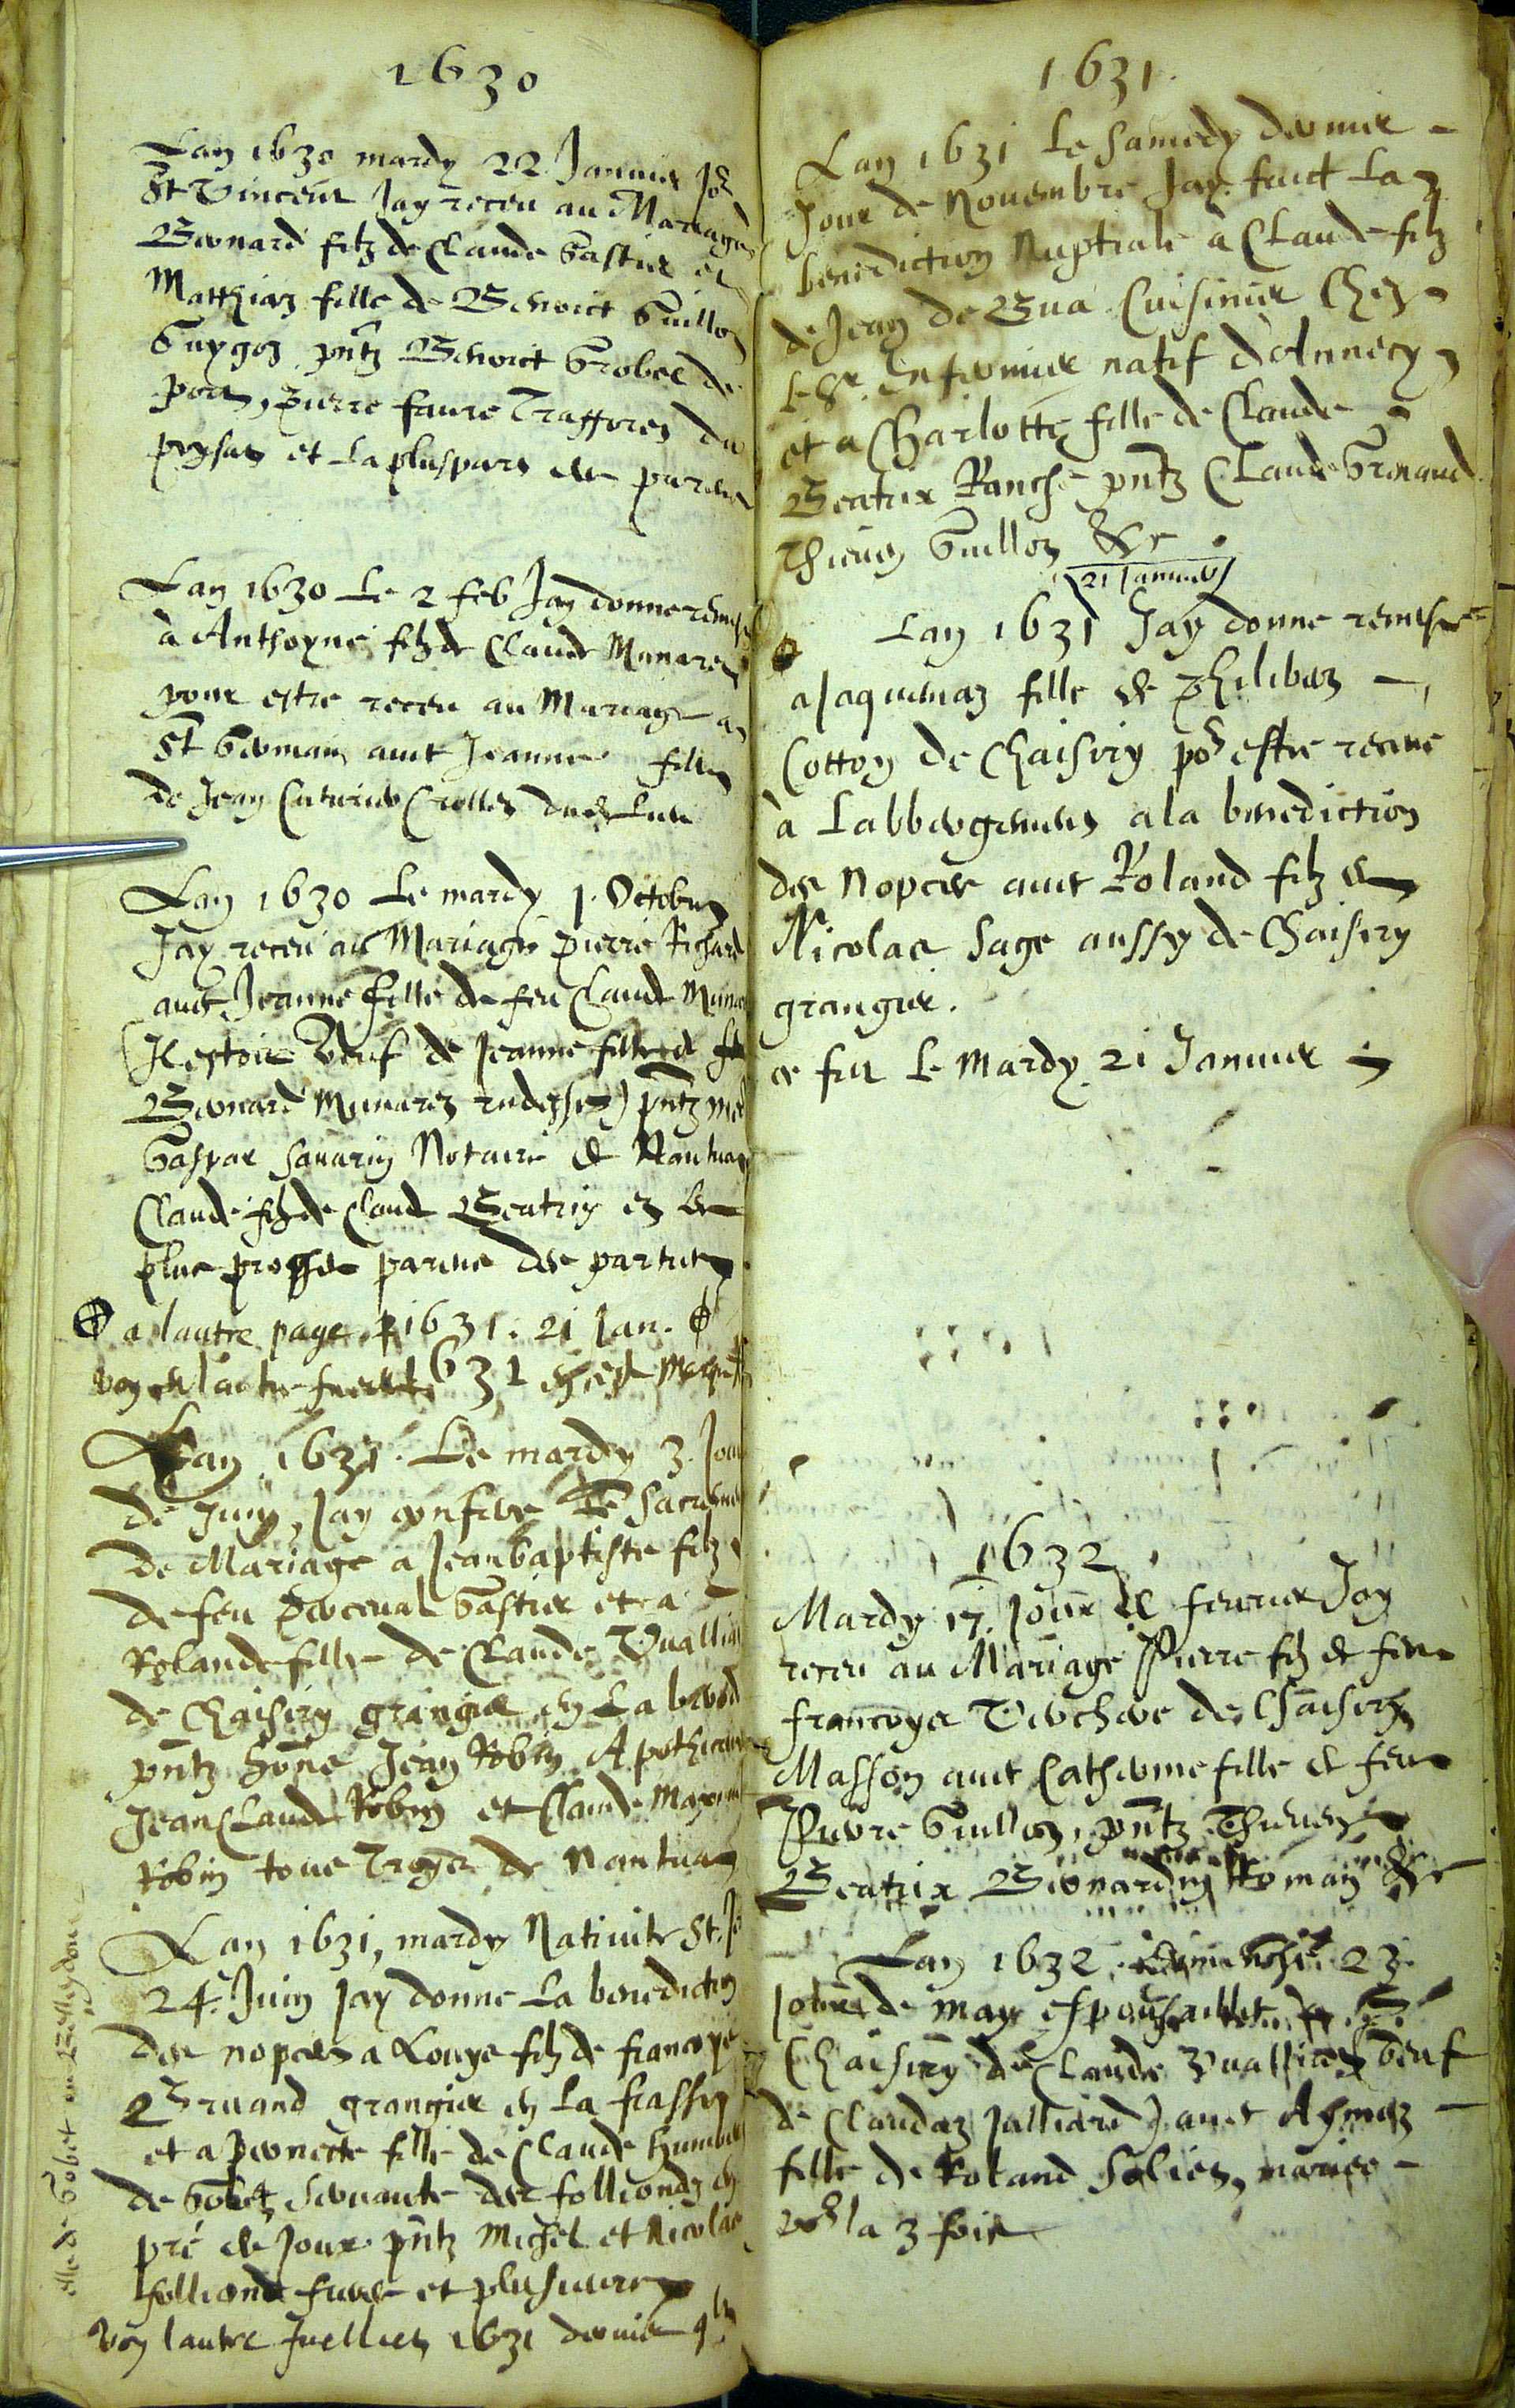 1630
Lan 1630 mardy 22 Januier Jor
St Vincent Jay receu au Mariage
Bernard filz de Claude Gastier et
Matthiaz fille de Benoict Guillon
Guygoz pntz Benoict Grobel de
Port, Pierre faure Traffores du
poysat et la pluspart de
Lan 1630 Le 2 feb Jay donne remise
à Anthoyne filz de Claude Munaret
pour estre receu au Mariage a
St Germain auct Jeanne fille
de Jean
Lan 1630 Le mardy 1. Octobre
Jay receu au Mariage pierre Richard
auct Jeanne fille de feu Claude
(Il estoit Veuf de Jeanne fille de
Bernard Munaret pntz
Gaspar Sauarin Notaire de Nantua
Claude filz de Claude Beatrix et
plus proches des parties
a lautre page 1631. 21 Jan.
voy lautre 631
Lan 1631. Le mardy 3. Jour
de Juin, Jay confere Le Sacreme
de Mariage a Jeanbaptiste filz
de feu Perceual Gastier et a
Rolande fille de Claude Vuallia
de Chaisiry grangier en La
pntz hone Jean Robin Apothicaire
Jean Claude Robin et Claude
Robin tous Troys de Nantua
Lan 1631, mardy Natiuite St. Jo
24. Juin Jay donne La benediction
des nopces a Louys filz de francoys
Bruand grangier en La frasse
et a pernette fille de Claude Humber
de Gobet, seruante des folliondz en
pré de Joux pntz Michel et Nicolas
folliond freres et plusieurs
Voy lautre fuellet 1631 dernier 9bre
1631.
Lan 1631 Le Samedy dernier
Jour de Nouembre Jay faict La
benediction Nuptiale à Claude filz
de Jean de Bua Cuisinier Chez
le Sr. Enfermier natif d'Annecy
et a Charlotte fille de Claude
Beatrix Ranche pntz Claude Grinand
Theuen Guillon &c.
21 Januier
Lan 1631 Jay donne remise
a Jaquemaz fille de Philibert
Cotton de Chaisiry por estre receue
à Labbergement a la benediction
des Nopces auct Roland filz de
Nicolas Sage aussy de Chaisiry
grangier.
ce fut Le Mardy 21 Januier
1632
Mardy 17. Jour de feurier Jay
receu au Mariage Pierre filz de feu
francoys Verchere de Chaisiry
Masson auct Catherine fille de feu
Pierre Guillon, pntz Theuen
Beatrix Bernardin Roman &c
Lan 1632 23.
Jour de may
Chaisiry de Claude Vuallier veuf
de Claudaz Jalliard) auct Aymaz
fille de Roland mariee
la 3 fois